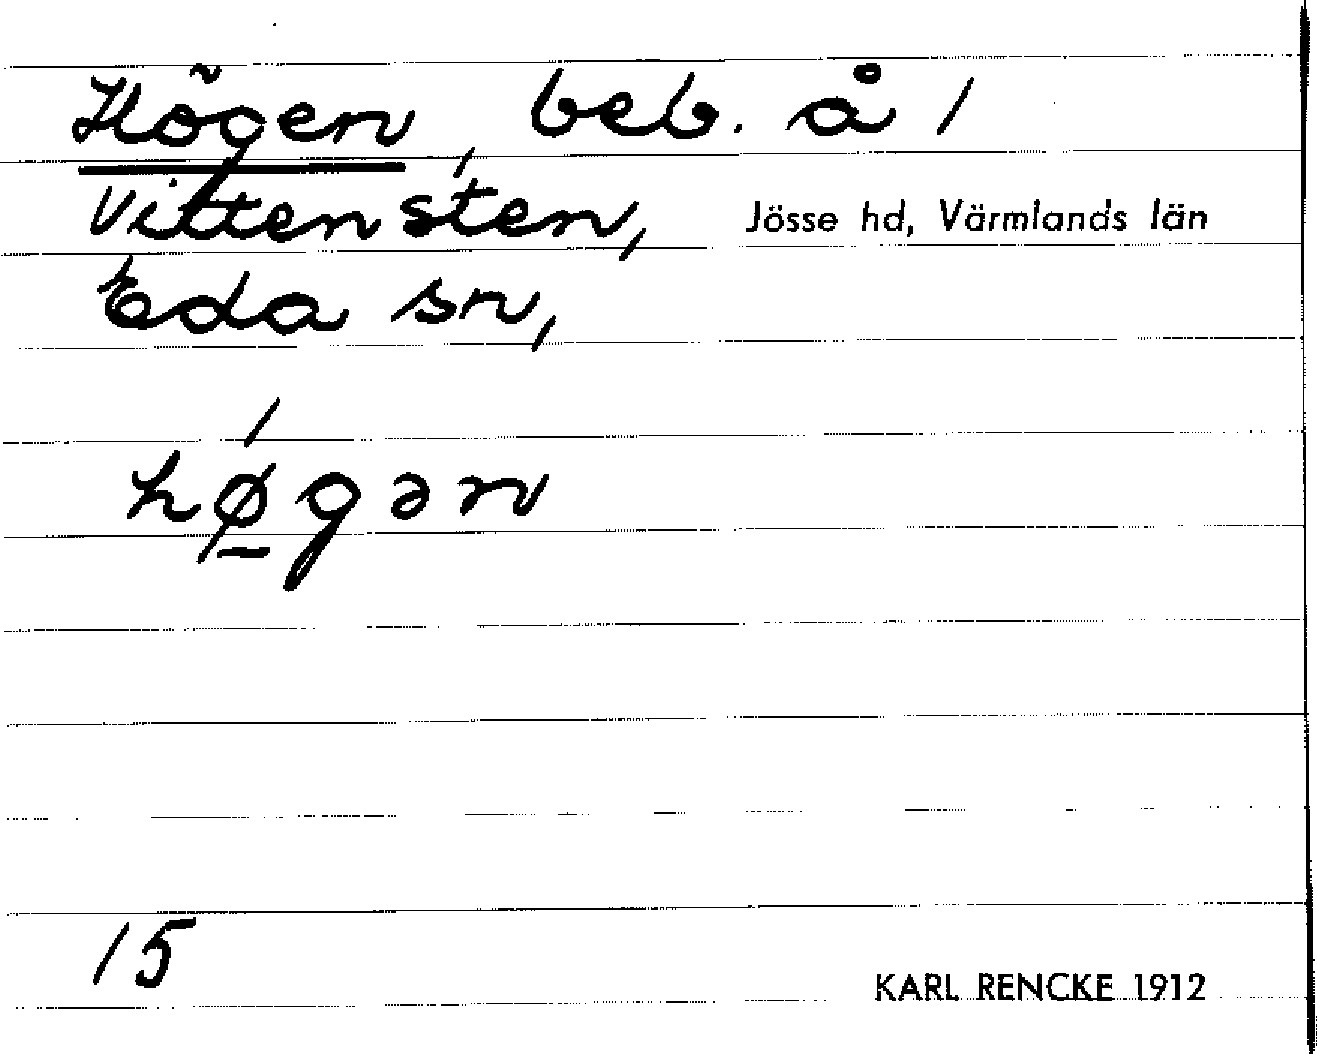 Högen, beb. å 1
Vittensten, Jösse hd, Värmlands län
Eda sn,
hǿ̱gən
15
KARL RENCKE 1912